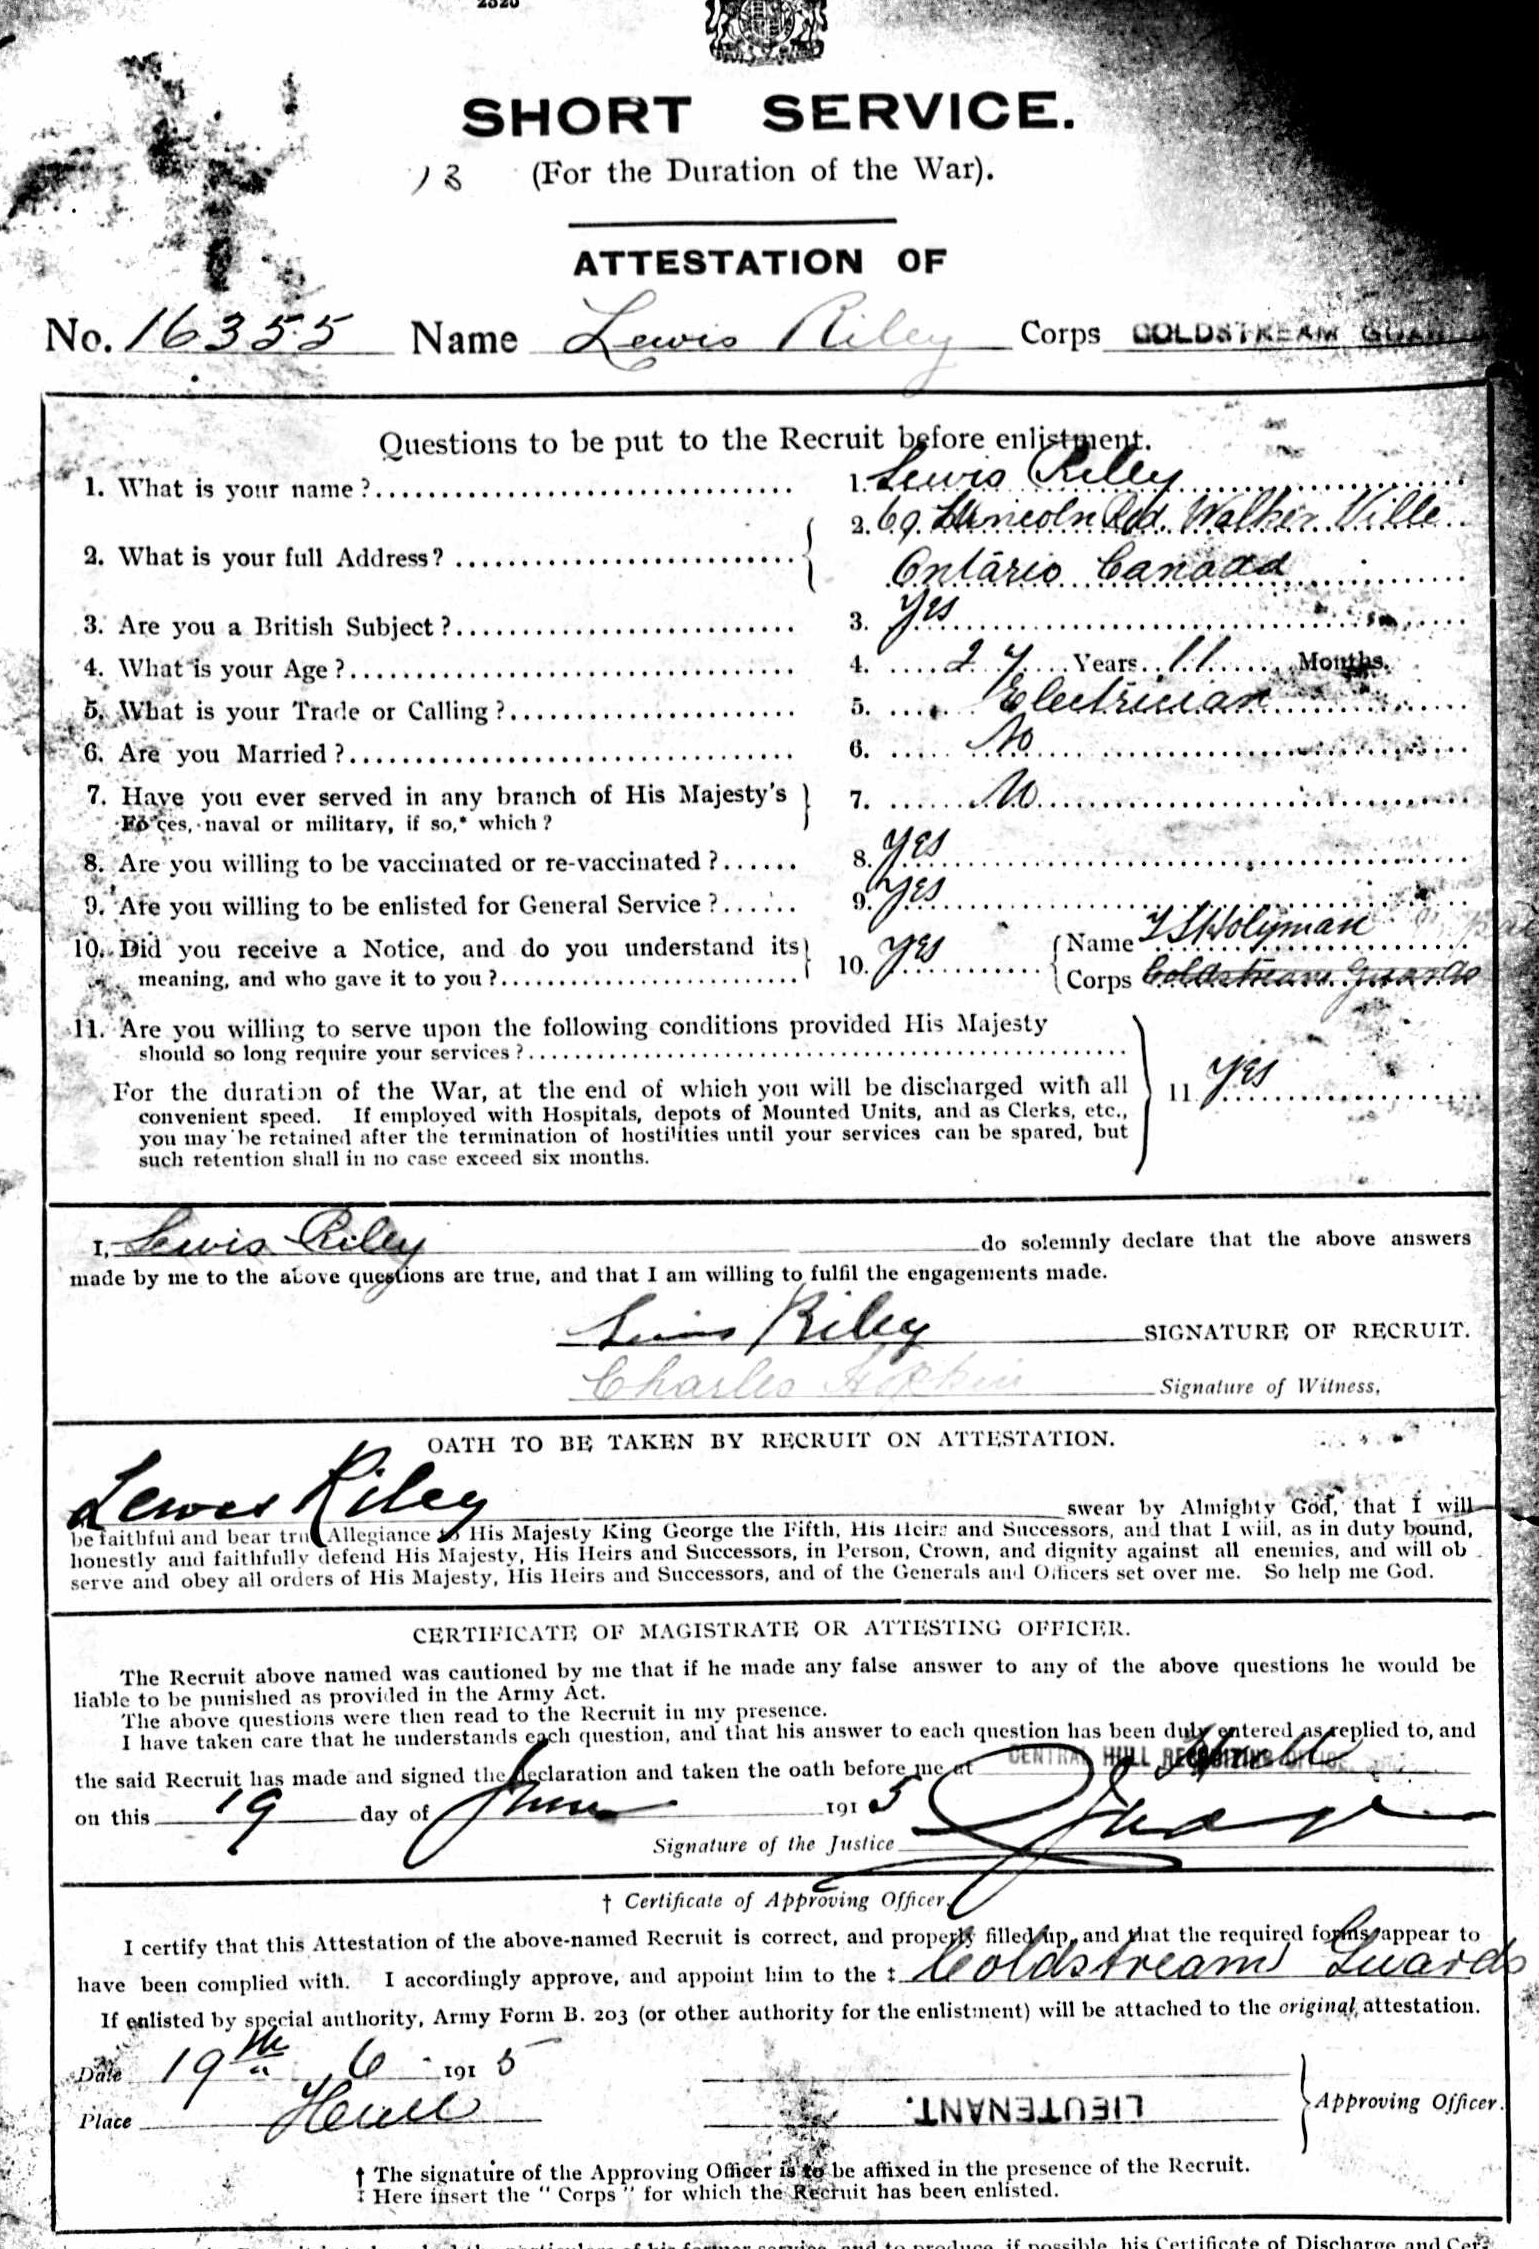 2520
SHORT SERVICE.
13 (For the Duration of the War).
ATTESTATION OF
No. 16355 Name Lewis Riley Corps COLDSTREAM
Questions to be put to the Recruit before enlistment.
1. What is your name? 1. Lewis Riley
2. 69 Lincoln Rd. Walker Ville
2. What is your full Address?
Ontario Canada
3. Are you a British Subject? 3. Yes
4. What is your Age? 4. 27 Years 11 Months.
5. What is your Trade or Calling? 5. Electrician
6. Are you Married? 6. No
7. Have you ever served in any branch of His Majesty's 7. No
Fo ces, naval or military, if so,* which?
8. Are you willing to be vaccinated or re-vaccinated? 8. Yes
9. Are you willing to be enlisted for General Service? 9. Yes
10. Did you receive a Notice, and do you understand its 10. Yes Name Holyman
meaning, and who gave it to you? Corps Coldstream Guards
11. Are you willing to serve upon the following conditions provided His Majesty
should so long require your services?
For the duration of the War, at the end of which you will be discharged with all 11 Yes
convenient speed. If employed with Hospitals, depots of Mounted Units, and as Clerks, etc.,
you may be retained after the termination of hostilities until your services can be spared, but
such retention shall in no case exceed six months.
I, Lewis Riley do solemnly declare that the above answers
made by me to the above questions are true, and that I am willing to fulfil the engagements made.
Lewis Riley SIGNATURE OF RECRUIT.
Charles Signature of Witness,
OATH TO BE TAKEN BY RECRUIT ON ATTESTATION.
Lewes Riley swear by Almighty God, that I will
be faithful and bear tru Allegiance to His Majesty King George the Fifth, His Heirs and Successors, and that I will, as in duty bound,
honestly and faithfully defend His Majesty, His Heirs and Successors, in Person, Crown, and dignity against all enemies, and will ob
serve and obey all orders of His Majesty, His Heirs and Successors, and of the Generals and Officers set over me. So help me God.
CERTIFICATE OF MAGISTRATE OR ATTESTING OFFICER.
The Recruit above named was cautioned by me that if he made any false answer to any of the above questions he would be
liable to be punished as provided in the Army Act.
The above questions were then read to the Recruit in my presence.
I have taken care that he understands each question, and that his answer to each question has been duly entered as replied to, and
the said Recruit has made and signed the declaration and taken the oath before me at CENTRAL HULL RECRUITING OFFICE Hull
on this 19 day of June 1915
Signature of the Justice
† Certificate of Approving Officer.
I certify that this Attestation of the above-named Recruit is correct, and properly filled up, and that the required forms appear to
have been complied with. I accordingly approve, and appoint him to the ‡ Coldstream Guards
If enlisted by special authority, Army Form B. 203 (or other authority for the enlistment) will be attached to the original attestation.
Date 19th 6 1915
LIEUTENANT. Approving Officer.
Place Hull
† The signature of the Approving Officer is to be affixed in the presence of the Recruit.
‡ Here insert the "Corps" for which the Recruit has been enlisted.
if possible, his Certificate of Discharge and